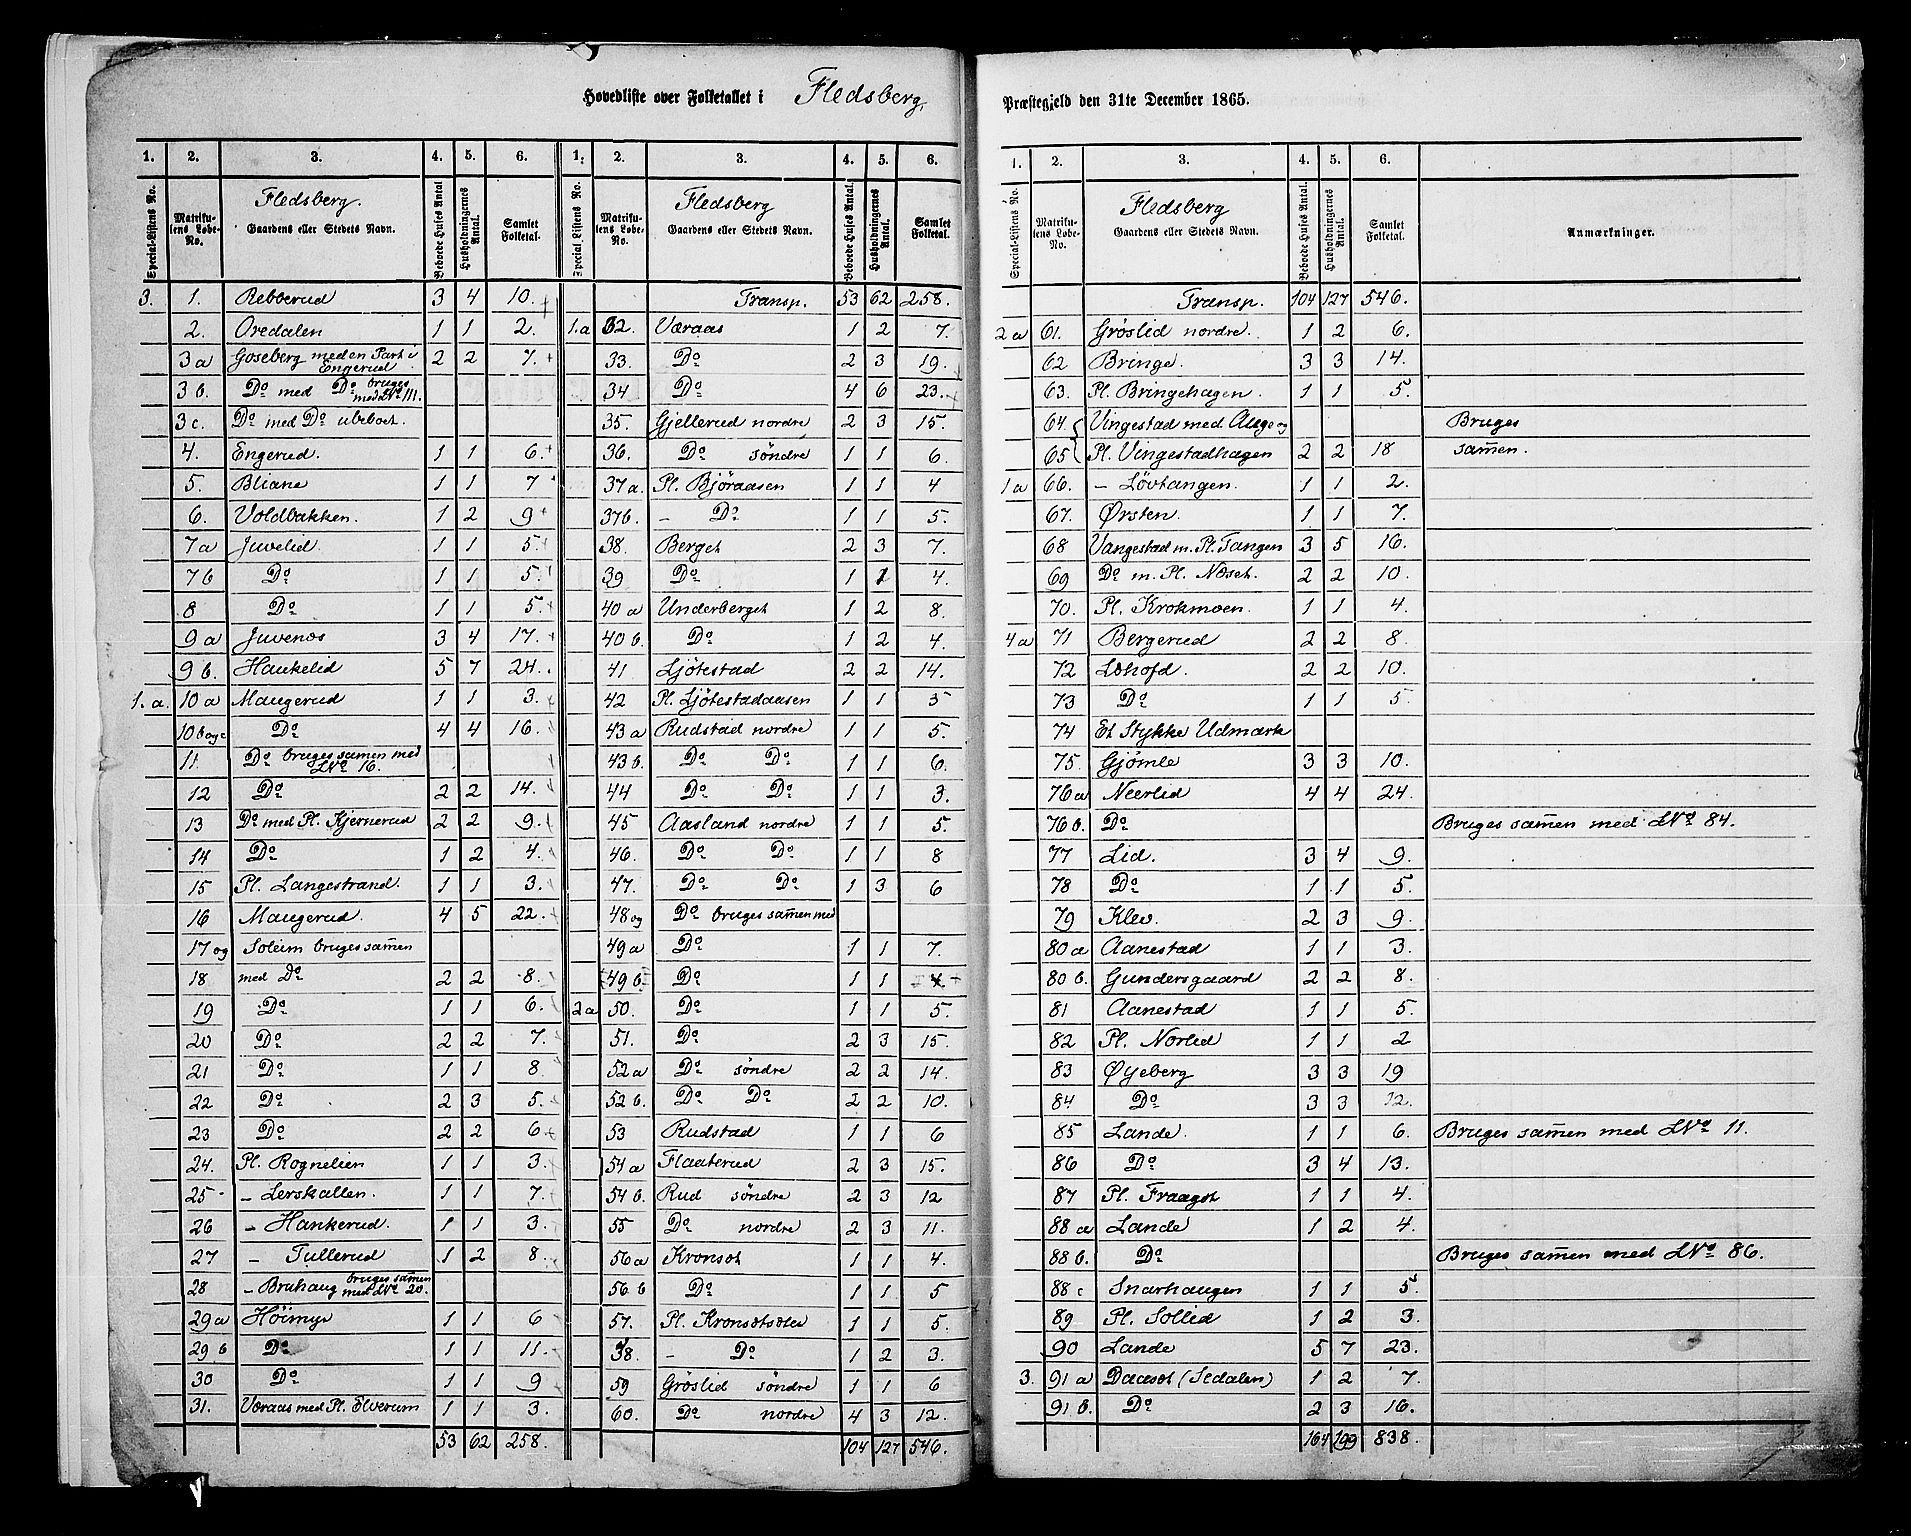 Hovedliste over Folketallet i Fledsberg Præstegjeld den 31te December 1865.
1. 2. 3. 4. 5. 6.
Special-Listens No. Matrikulens Løbe-No. Fledsberg. Gaardens eller Stedets Navn. Beboede Huses Antal Husholdningernes Antal. Samlet Folketal.
3. 1. Rebberud 3 4 10.
2. Oredalen 1 1 2.
3 a Goseberg med en Part i Engerud. 2 2 7.
3 b. Do med Do bruges med LNo 111.
3 c. Do med Do ubeboet.
4. Engerud. 1 1 6.
5. Bliane 1 1 7
6. Voldbakken. 1 2 9
7 a Juvelid. 1 1 5.
7 b Do 1 1 5.
8 Do 1 1 5.
9 a Juvenæs 3 4 17.
9 b. Haukelid 5 7 24.
1. a. 10 a Maugerud 1 1 3.
10 b og c Do 4 4 16.
11. Do bruges samen med LNo 16.
12 Do 2 2 14.
13 Do med Pl. Kjernerud 2 2 9.
14 Do 1 2 4.
15 Pl. Langestrand. 1 1 3.
16 Maugerud. 4 5 22.
17 og Soleim bruges samen
18 med Do 2 2 8.
19 Do 1 1 6.
20 Do 2 2 7.
21 Do 1 1 8.
22 Do 2 3 5.
23 Do 2 2 6
24. Pl. Rognelien 1 1 3.
25 - Lerskallen. 1 1 7.
26 - Hankerud. 1 1 3.
27 - Tullerud 1 2 8.
28 - Bruhaug bruges samen med LNo 20.
29 a Høimyr 1 1 6
29 b Do 1 1 11.
30 Do 1 1 9
31. Væraas med Pl. Elverum 1 1 3.
53 62 258.
1. 2. 3. 4. 5. 6.
Special Listens No. Matrikulens Løbe-No. Fledsberg Gaardens eller Stedets Navn. Beboede Huses Antal. Husholdningernes Antal. Samlet Folketal.
Transp. 53 62 258.
1. a 32. Væraas 1 2 7.
33. Do 2 3 19.
34 Do 4 6 23.
35. Gjellerud nordre 2 3 15.
36. Do søndre 1 1 6.
37 a. Pl. Bjøraasen 1 1 4
37 b. - Do 1 1 5.
38. Berget 2 3 7.
39 Do 1 1 4.
40 a Underberget 1 2 8.
40 b. Do 1 2 4.
41 Ljøtestad 2 2 14.
42 Pl. Ljøtestadaasen 1 1 3
43 a Rudstad nordre 1 1 5.
43 b. Do Do 1 1 6.
44 Do Do 1 1 3.
45 Aasland nordre 1 1 5.
46. Do Do 1 1 8
47. Do Do 1 3 6
48 og Do bruges samen med
49 a Do 1 1 7.
49 b. Do 1 1 4.
2 a 50. Do 1 1 5.
51. Do 2 3 15.
52 a Do søndre 2 2 14.
52 b. Do Do 2 2 10.
53 Rudstad 1 1 6
54 a Flaaterud 2 3 15.
54 b. Rud søndre 2 3 12
55 Do nordre 2 3 11.
56 a Kronsæt 1 1 4.
56 b Do 1 1 5
57. Pl. Kronsætsæter 1 1 5.
58. - Do 1 2 3.
59 Grøslid søndre 1 1 6
60. Do nordre 4 3 12.
104 127 546.
1. 2. 3. 4. 5. 6.
Special-Listens No. Matrikulens Løbe-No. Fledsberg Gaardens eller Stedets Navn. Beboede Huses Antal. Husholdningernes Antal. Samlet Folketal. Anmærkninger.
Transp. 104 127 546.
2 a 61. Grøslid nordre. 1 2 6.
62 Bringe. 3 3 14.
63. Pl. Bringehagen. 1 1 5.
64. Vingestad med Auge og Bruges
65 Pl. Vingestadhagen 2 2 18 samen.
1 a 66. - Løvtangen. 1 1 2.
67. Ørsten. 1 1 7.
68 Vangestad m. Pl. Tangen 3 5 16.
69 Do m. Pl. Næset. 2 2 10.
70. Pl. Krokmoen. 1 1 4.
4 a 71 Bergerud 2 2 8
72 Lohofd. 2 2 10.
73 Do 1 1 5
74 Et Stykke Udmark
75. Gjømle 3 3 10.
76 a Neerlid 4 4 24.
76 b. Do Bruges samen med LNo 84.
77 Lid. 3 4 9.
78 Do 1 1 5.
79 Klev. 2 3 9.
80 a Aanestad 1 1 3.
80 b. Gundersgaard 2 2 8.
81 Aanestad 1 1 5.
82 Pl. Norlid 1 1 2
83 Øyeberg 3 3 19
84 Do 3 3 12.
85 Lande. 1 1 6. Bruges samen med LNo 11.
86 Do 3 4 13.
87 Pl. Fraaget 1 1 4.
88 a Lande 1 2 4.
88 b. Do Bruges samen med LNo 86.
88 c Snarhaugen 1 1 5.
89 Pl. Sollid 1 2 3.
90 Lande 5 7 23.
3. 91 a Daaset (Sedalen) 1 2 7.
91 b. Do 2 3 16.
164 199 838.